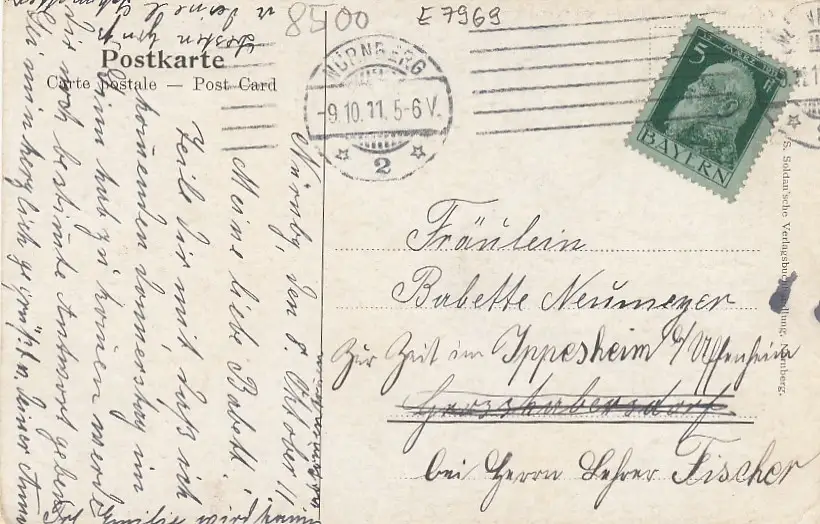 8500
E 7969
Postkarte
Carte postale — Post Card
NÜRNBERG
-9.10.11. 5-6 V.
2
5
BAYERN
Fräulein
Babette Neumeyer
Zur Zeit im Ippesheim b/Uffenheim
Grosshabersdorf
bei Herrn Lehrer Fischer
S. Soldan'sche Verlagsbuchhandlung, Nürnberg.
Nürnbg, den 8. Oktober 11
Meine liebe Babett!
Teile dir mit daß ich
kommenden Donnerstag im
hab zu kommen werde
dir noch bestimte Antwort geben
Sei nun herzlich gegrüßt v. deiner Anna
Emilie wird kaum